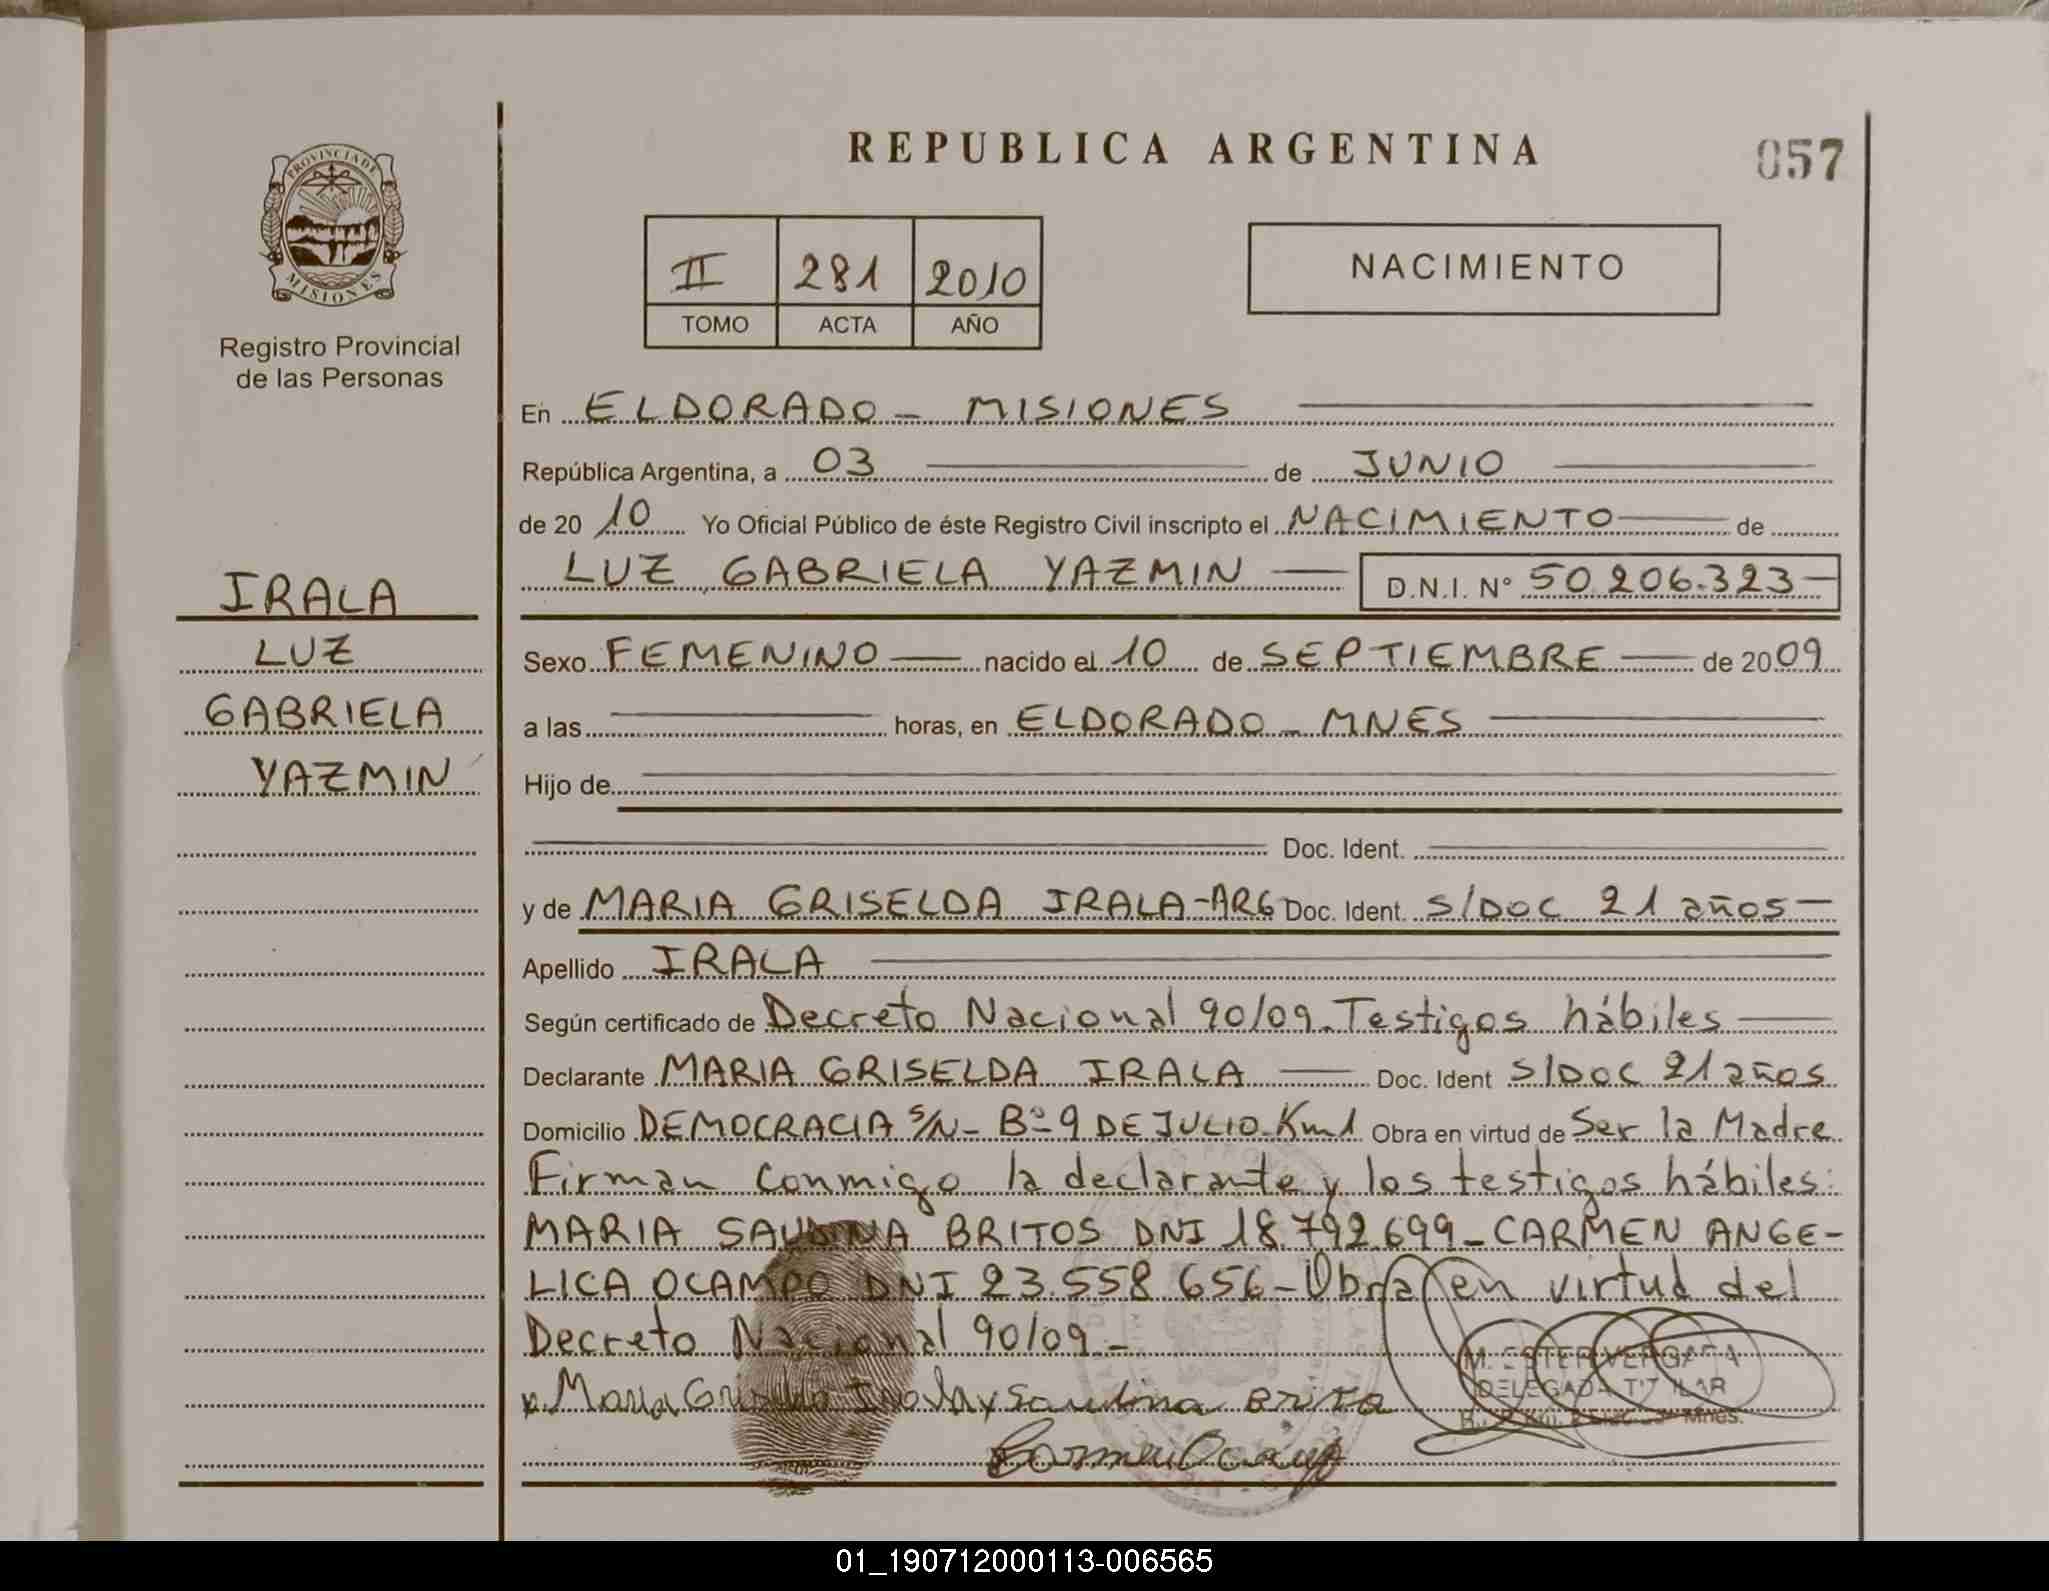 REPUBLICA ARGENTINA
057
PROVINCIA DE
MISIONES
Registro Provincial
de las Personas
II 281 2010
TOMO ACTA AÑO
NACIMIENTO
IRALA
LUZ
GABRIELA
YAZMIN
En ELDORADO - MISIONES
República Argentina, a 03 de JUNIO
de 20 10 Yo Oficial Público de éste Registro Civil inscripto el NACIMIENTO de
LUZ GABRIELA YAZMIN D.N.I. N° 50.206.323
Sexo FEMENINO nacido el 10 de SEPTIEMBRE de 2009
a las horas, en ELDORADO - MNES
Hijo de
Doc. Ident.
y de MARIA GRISELDA IRALA-ARG Doc. Ident. S/DOC 21 años
Apellido IRALA
Según certificado de Decreto Nacional 90/09. Testigos hábiles
Declarante MARIA GRISELDA IRALA Doc. Ident S/DOC 21 años
Domicilio DEMOCRACIA S/N - Bº 9 DE JULIO Km 1 Obra en virtud de Ser la Madre
Firman conmigo la declarante y los testigos hábiles:
MARIA SAUDINA BRITOS DNI 18.792.699 - CARMEN ANGE-
LICA OCAMPO DNI 23.558.656 - Obra en virtud del
Decreto Nacional 90/09.-
x Maria Griselda Irala x Saudina
Carmen Ocampo
M. ESTER VERGARA
DELEGADA TITULAR
Mnes.
01_190712000113-006565